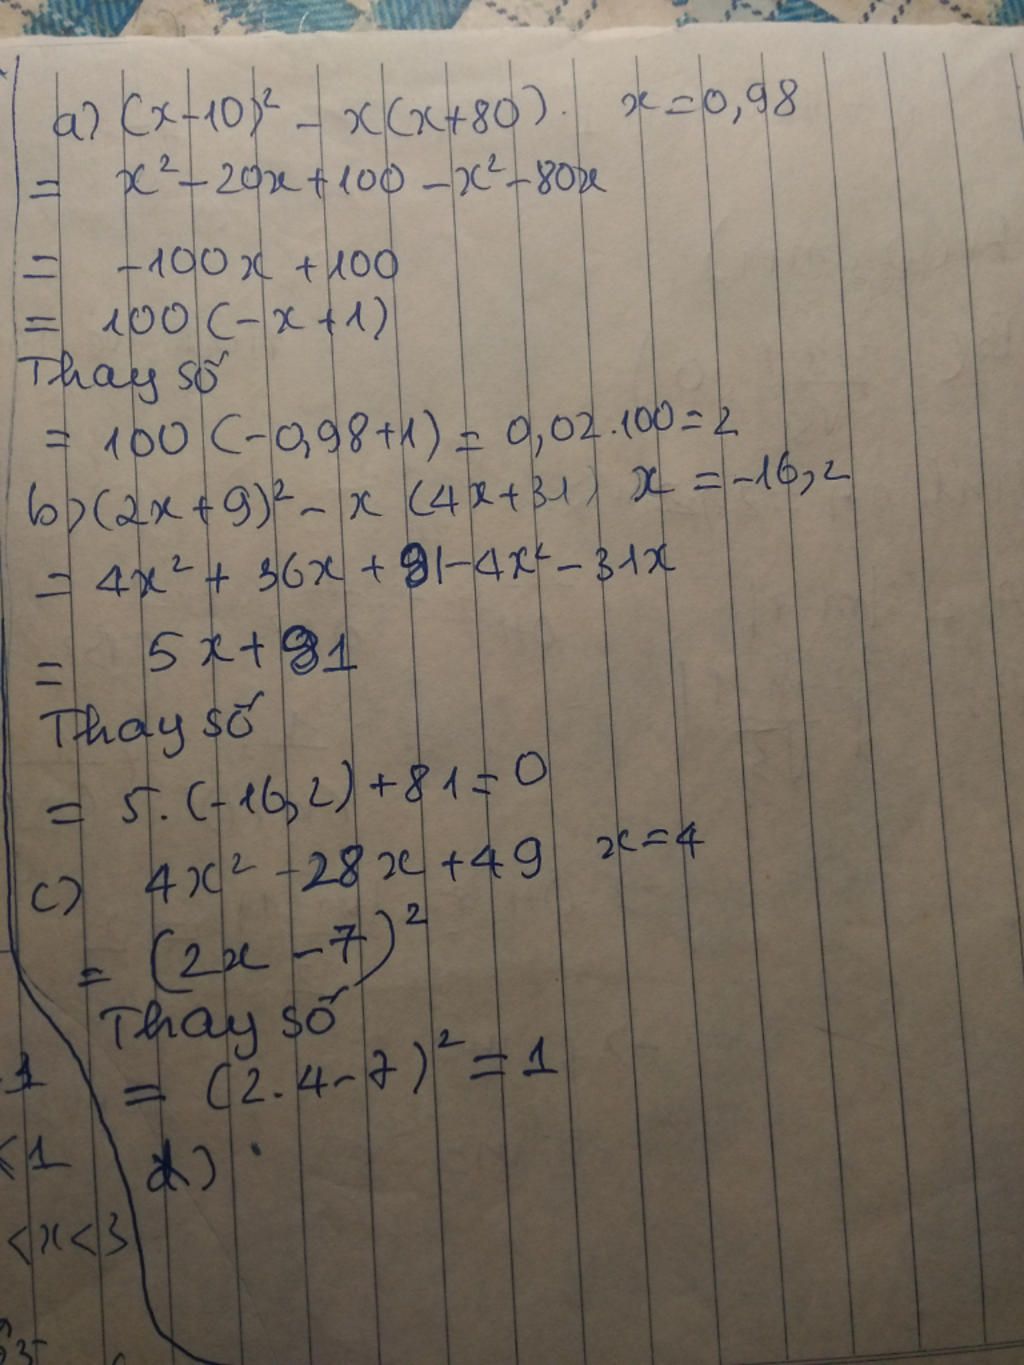 a) (x-10)² - x(x+80). x=0,98
= x² - 20x + 100 - x² - 80x
= -100x + 100
= 100 (-x+1)
Thay số
= 100 (-0,98+1) = 0,02.100 = 2
b) (2x+9)² - x (4x+31) x = -16,2
= 4x² + 36x + 81 - 4x² - 31x
= 5x + 81
Thay số
= 5.(-16,2) + 81 = 0
c) 4x² - 28x + 49 x=4
= (2x - 7)²
Thay số
= (2.4-7)² = 1
d)
1
<1
<x<3